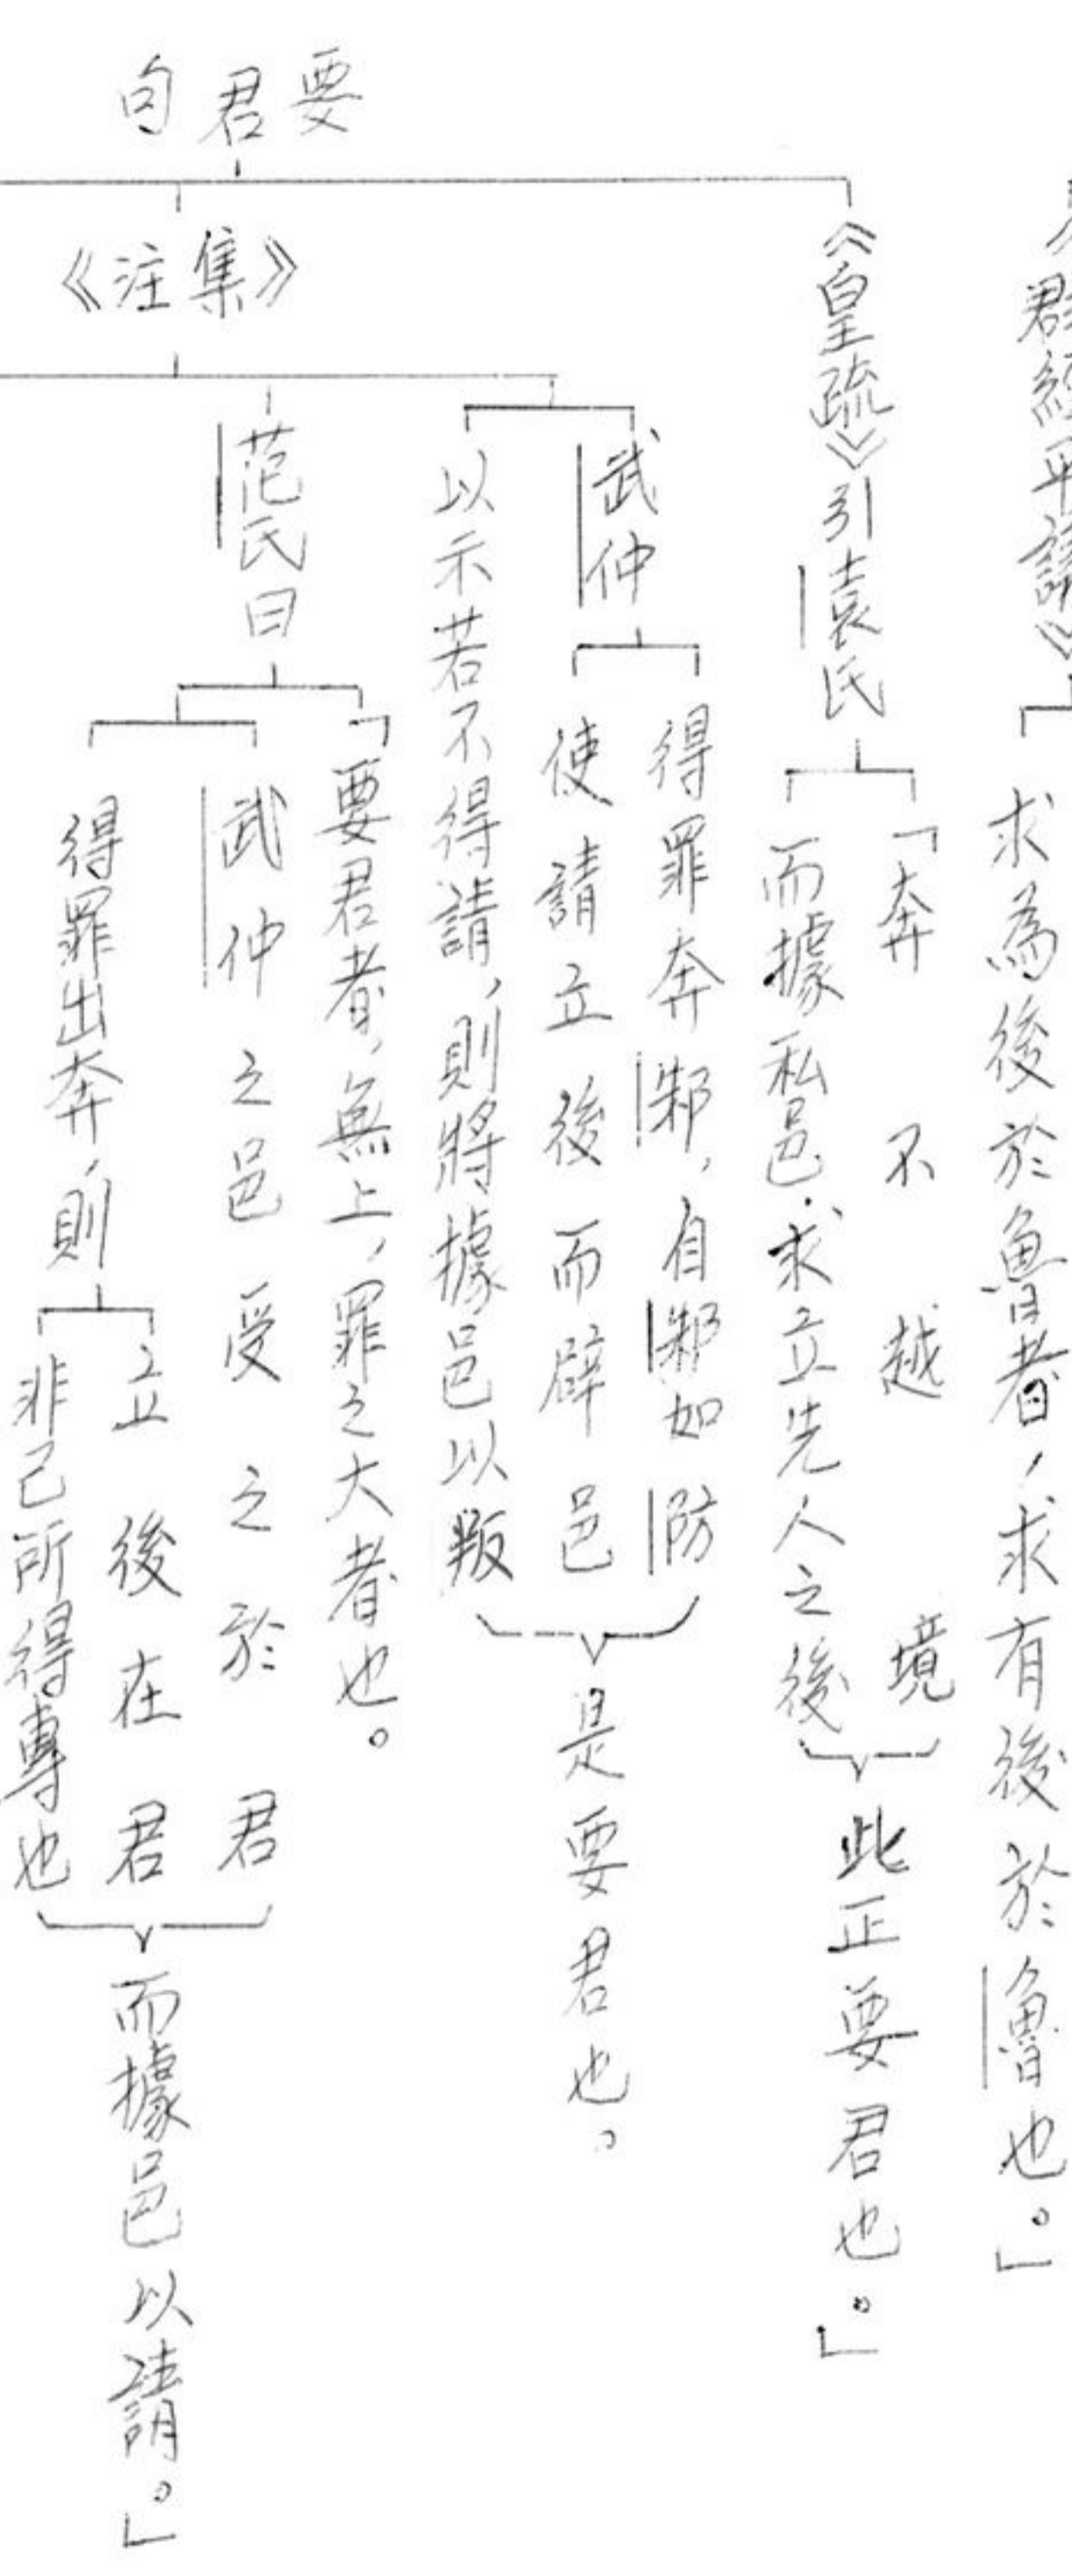 群經平議》
求為後於魯者，求有後於魯也。」
要君句
《皇疏》引袁氏
「奔不越境
而據私邑，求立先人之後
此正要君也。」
《集注》
武仲
得罪奔邾，自邾如防
使請立後而辟邑
以示若不得請，則將據邑以叛
是要君也。
范氏曰
「要君者，無上，罪之大者也。
武仲之邑受之於君
得罪出奔，則
立後在君
非己所得專也
而據邑以請。」